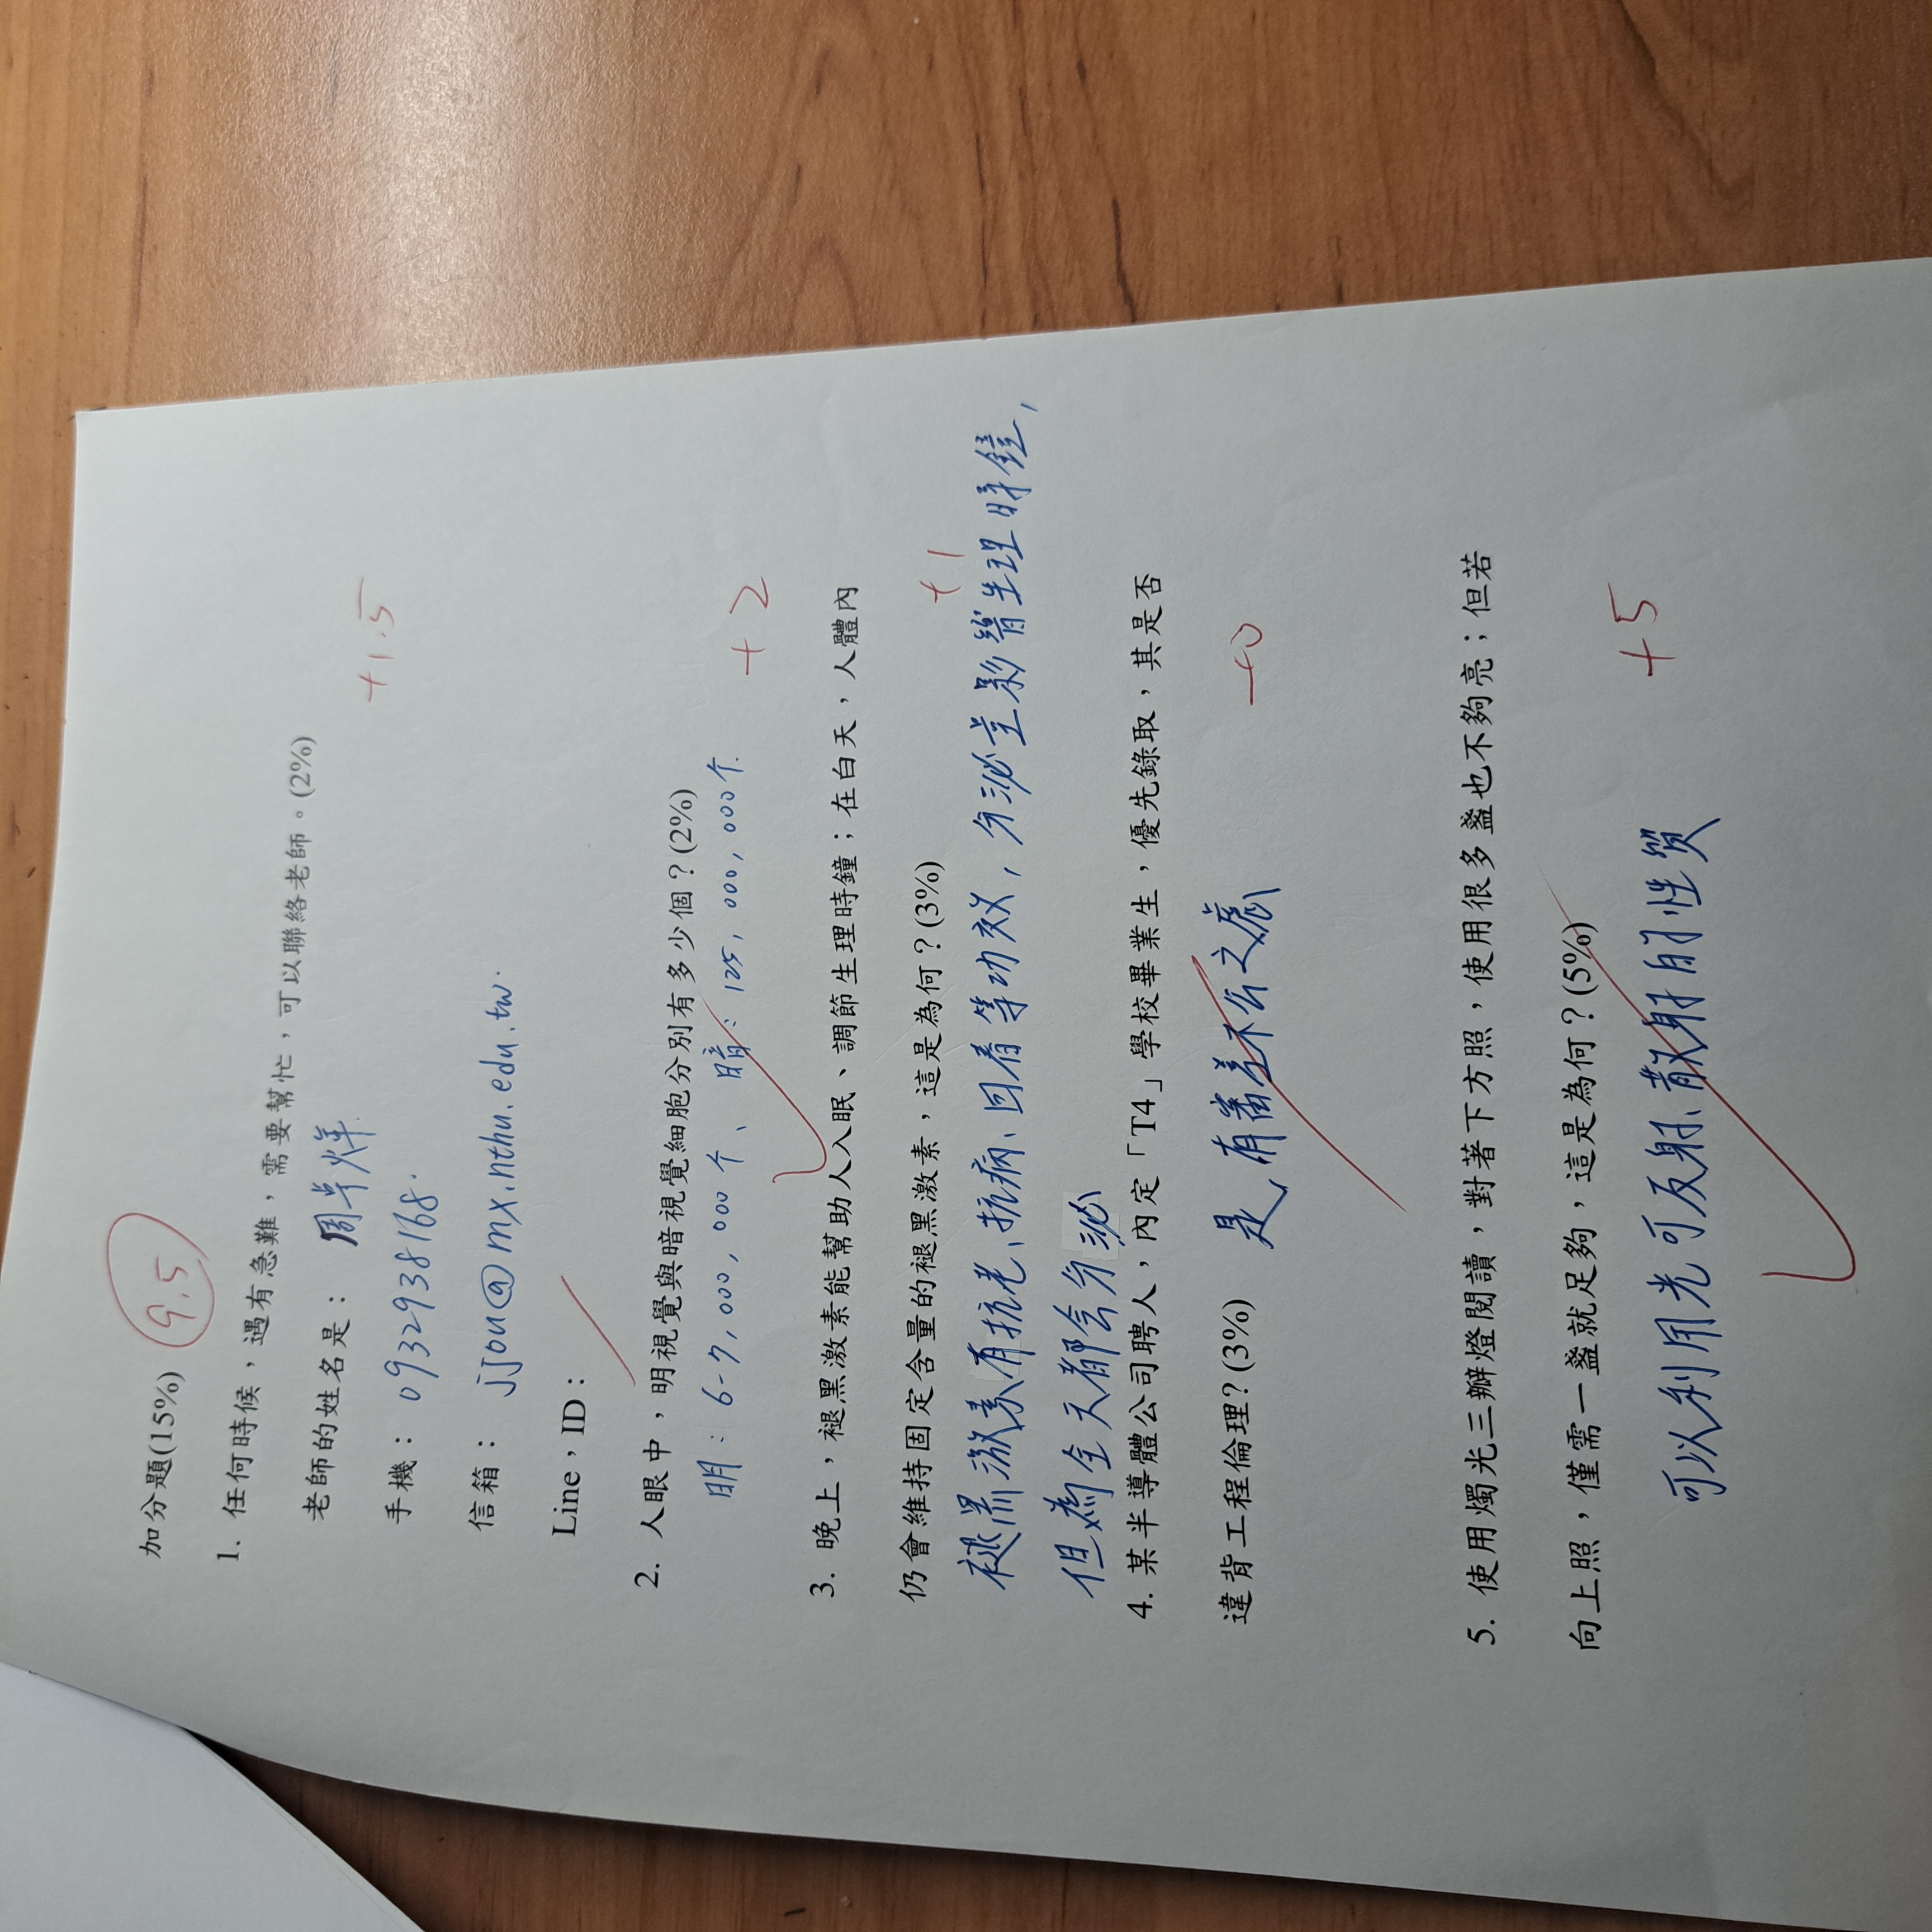 加分題(15%) 9.5
1. 任何時候，遇有急難，需要幫忙，可以聯絡老師。(2%)
老師的姓名是： 周卓煇
+1.5
手機： 0932938168.
信箱： jjou@mx.nthu.edu.tw.
Line，ID：
2. 人眼中，明視覺與暗視覺細胞分別有多少個？(2%)
明：6-7,000,000个、暗：125,000,000个.
+2
3. 晚上，褪黑激素能幫助人入眠、調節生理時鐘；在白天，人體內
仍會維持固定含量的褪黑激素，這是為何？(3%)
+1
褪黑激素有抗老、抗病、回春等功效，分泌量影響生理時鐘，
但為全天都会分泌
4. 某半導體公司聘人，內定「T4」學校畢業生，優先錄取，其是否
違背工程倫理？(3%) 是，有審差不公之虞
+0
5. 使用燭光三瓣燈閱讀，對著下方照，使用很多盞也不夠亮；但若
向上照，僅需一盞就足夠，這是為何？(5%)
+5
可以利用光可反射、散射的性質